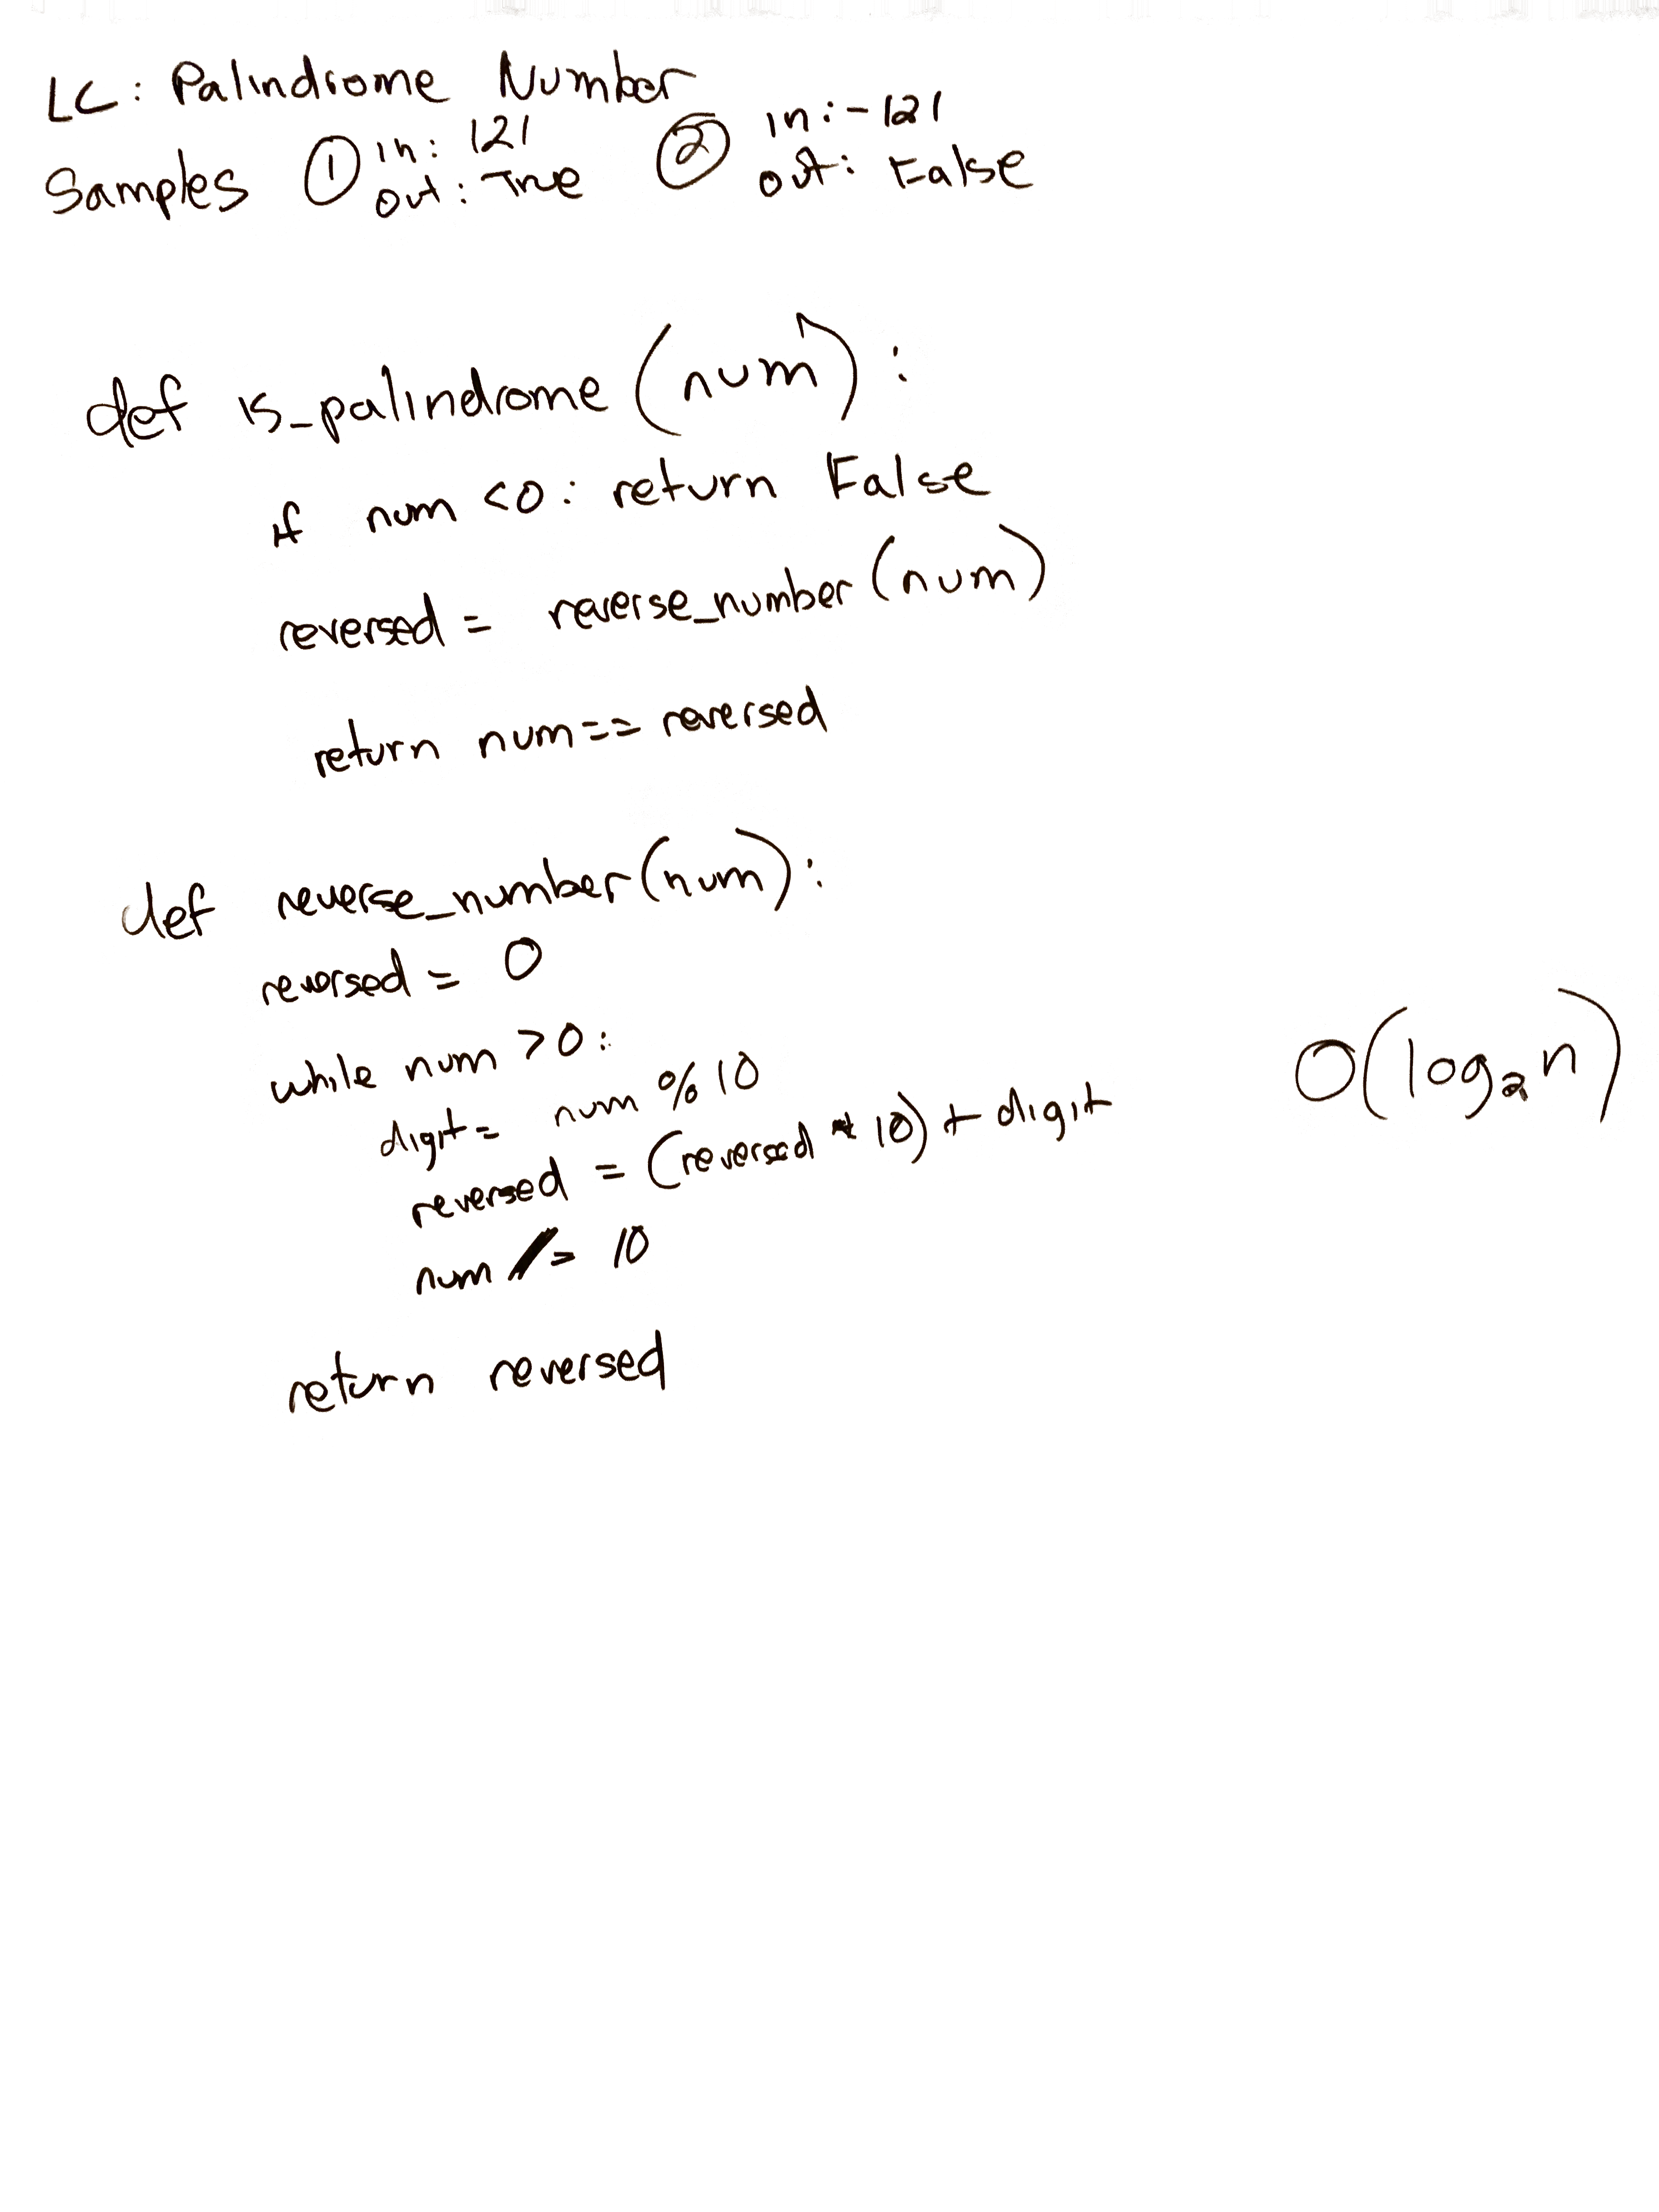 LC: Palindrome Number
Samples ① in: 121 ② in: -121
out: True out: False
def is_palindrome(num):
if num <0: return False
reversed = reverse_number(num)
return num == reversed
def reverse_number(num):
reversed = 0
while num >0:
digit = num % 10
reversed = (reversed * 10) + digit
num /= 10
return reversed
O(log₂n)